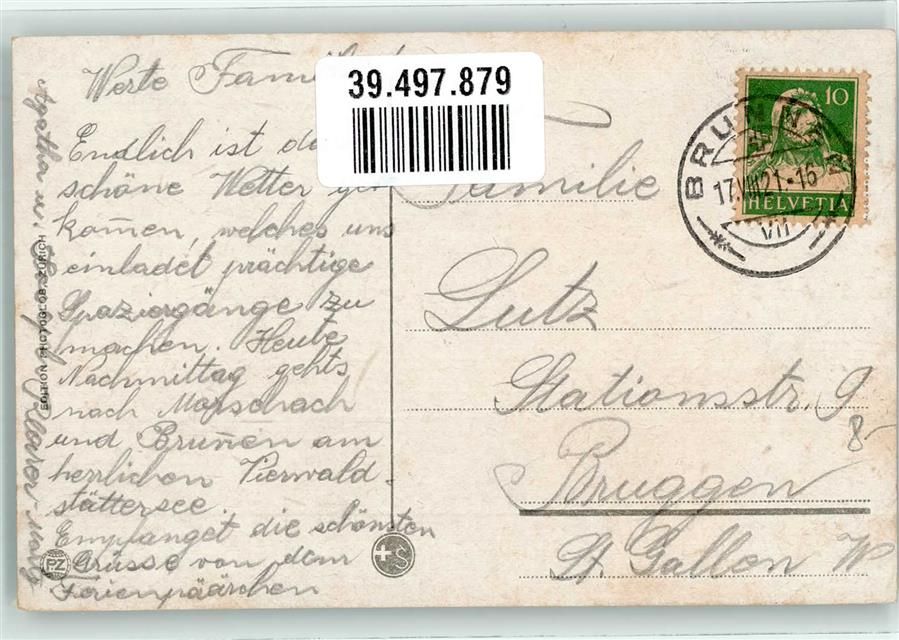 Werte
39.497.879
Endlich ist
schöne Wetter
kom̄en, welches uns
einladet prächtige
Spaziergänge zu
machen. Heute
Nachmittag gehts
nach Morschach
und Brun̄en am
herrlichen Vierwald-
stättersee.
Empfanget die schönsten
Grüsse von dem
Ferienpäärchen
Agatha u.
EDITION PHOTOGLOB ZÜRICH
PZ
S
Familie
Lutz
Stationsstr. 9
Bruggen
St. Gallen W
8-
10
HELVETIA
BRUNNEN
17.VIII 21-16
VII